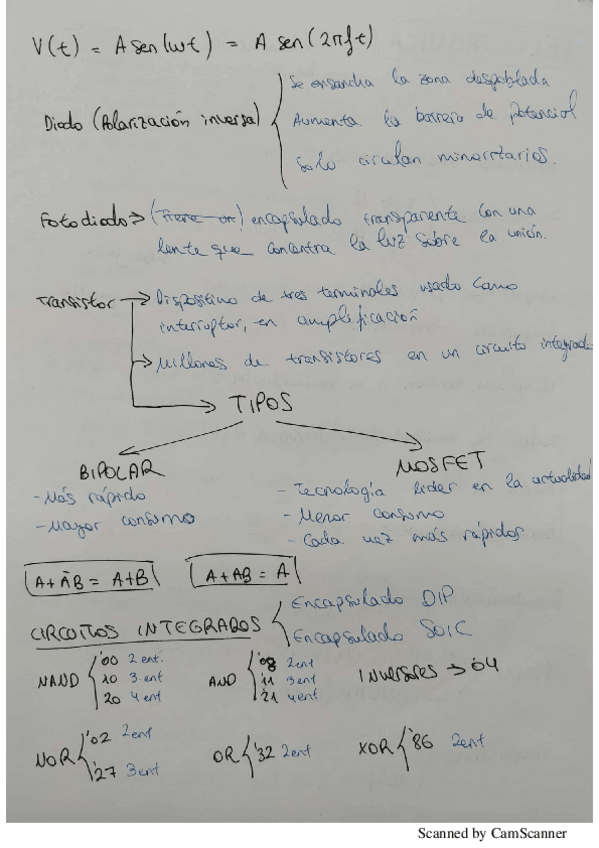 V(t) = A sen(ωt) = A sen(2πft)
Diodo (Polarización inversa)
Se ensancha la zona despoblada
Aumenta la barrera de potencial
Solo circulan minoritarios.
Fotodiodo → (Tiene un) encapsulado transparente con una
lente que concentra la luz sobre la unión.
Transistor → Dispositivo de tres terminales usado como
interruptor, en amplificación
→ Millones de transistores en un circuito integrado
→ TIPOS
BIPOLAR
- Más rápido
- Mayor consumo
MOSFET
- Tecnología líder en la actualidad
- Menor consumo
- Cada vez más rápidos
A + ĀB = A+B
A + AB = A
CIRCUITOS INTEGRADOS
Encapsulado DIP
Encapsulado SOIC
NAND
'00 2 ent.
10 3 ent
20 4 ent
AND
'08 2ent
'11 3ent
'21 4ent
INVERSORES → 04
NOR
'02 2ent
'27 3ent
OR { '32 2ent
XOR { '86 2ent
Scanned by CamScanner